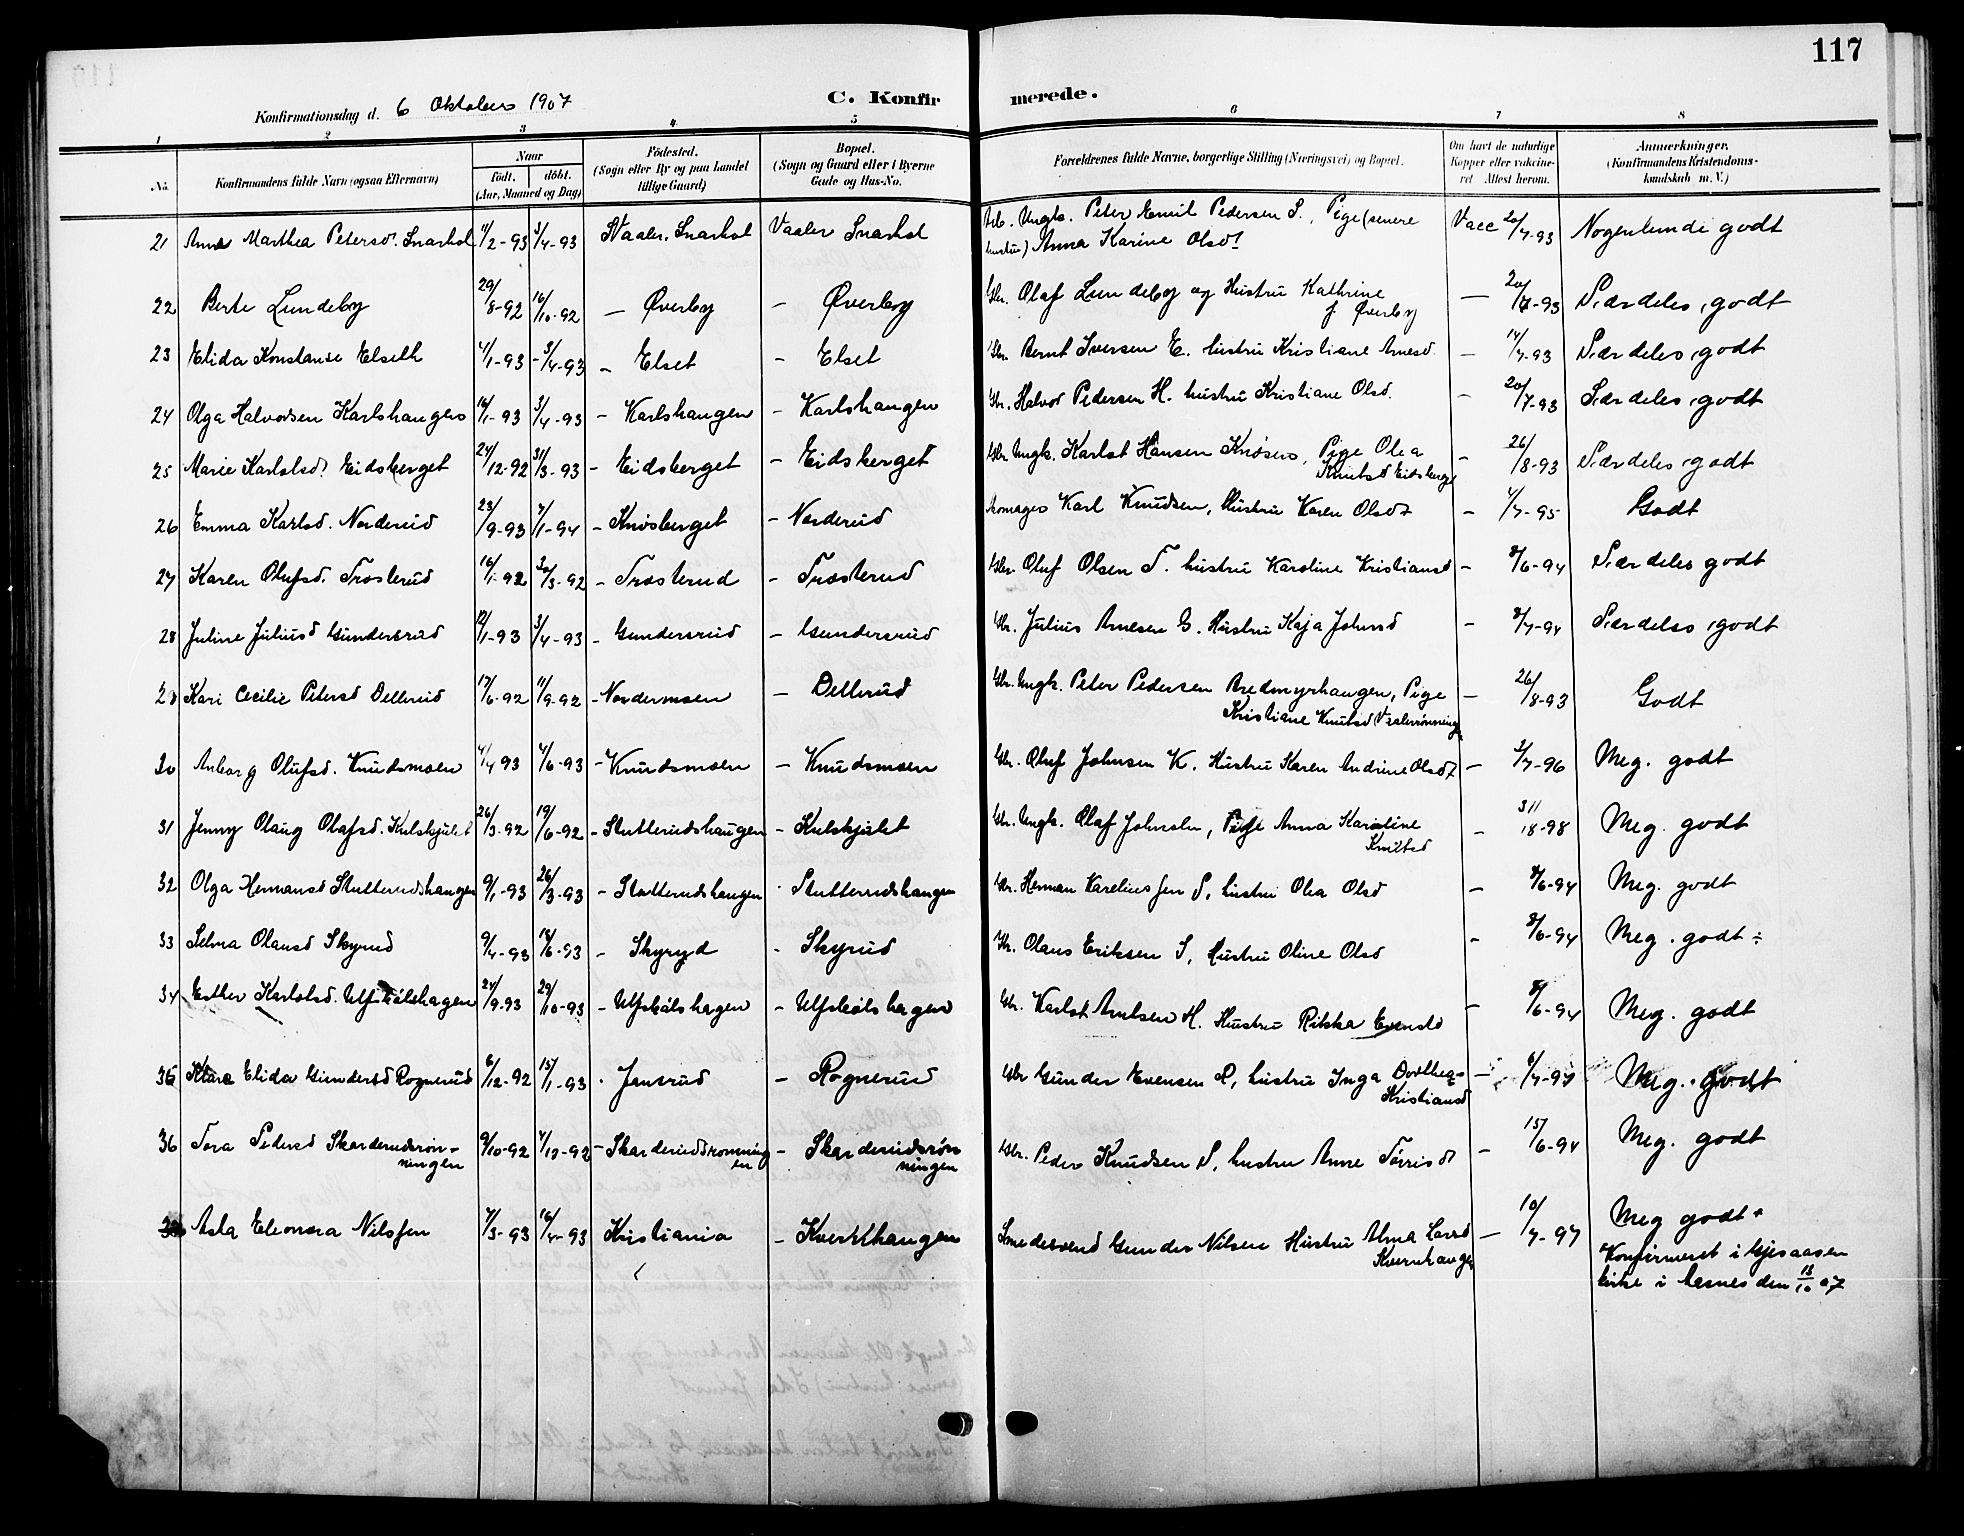 117
Konfirmationsdag d. 6 Oktober 1907
C. Konfirmerede.
1 2 3 4 5 6 7 8
No. Konfirmandens fulde Navn (ogsaa Efternavn) Naar født. døbt. (Aar, Maaned og Dag) Födested. (Sogn eller By og paa Landet tillige Gaard) Bopæl. (Sogn og Gaard eller i Byerne Gade og Hus-No. Forældrenes fulde Navne, borgerlige Stilling (Næringsvei) og Bopæl. Om havt de naturlige Kopper eller vaccineret Attest herom. Anmerkninger. (Konfirmandens Kristendomskundskab m. V.)
21 Anna Marthea Petersd. Snarhol 4/2-93 3/4-93 Vaaler, Snarhol Vaaler Snarhol Arb. Ungk. Peter Emil Pedersen S., Pige (senere hustru) Anna Karine Olsdt Vacc 20/7-93 Nogenlunde godt
22 Berte Lundeby 29/8-92 16/10-92 — Øverby - Øverby Gbr. Olaf Lundeby og Hustru Kathrine f. Øverby — 20/7-93 Særdeles godt
23 Elida Konstanse Elseth 4/1-93 3/4-93 - Elset - Elset Gbr. Bernt Iversen E. hustru Kristiane Arnesd. - 14/7-93 Særdeles godt
24 Olga Halvorsen Karlshaugen 16/1-93 3/4-93 - Karlshaugen - Karlshaugen Gbr. Halvor Pedersen H. hustru Kristiane Olsd. - 20/7-93 Særdeles godt
25 Marie Karlolsd. Eidsberget 24/12-92 31/3-93 - Eidsberget - Eidsberget Gbr. Ungk. Karlot Hansen Knøsen, Pige Olea Knutsd Eidsberget - 26/8-93 Særdeles godt
26 Emma Karlsd. Norderud 23/9-93 7/1-94 - Knøsberget - Norderud Skomager Karl Knudsen, Hustru Karen Olsdt - 4/7-95 Godt
27 Karen Olufsd. Trosterud 16/1-92 20/3-92 - Trosterud - Trosterud Gbr. Oluf Olsen T. hustru Karoline Kristiansd - 8/6-94 Særdeles godt
28 Juline Juliusd Gundersrud 12/1-93 3/4-93 - Gundersrud - Gundersrud Gbr. Julius Arnesen G. Hustru Kaja Johnsd - 8/7-94 Særdeles godt
29 Kari Cecilie Petersd Dellerud 17/6-92 11/9-92 - Nordermoen - Dellerud Gbr. Ungk. Peter Pedersen Bredmyrhaugen, Pige Kristiane Knutsd - 26/8-93 Godt
30 Anborg Olufsd. Knudsmoen 4/4 93 4/6-93 - Knudsmoen - Knudsmoen Gbr. Oluf Johnsen K. Hustru Karen Andrine Olsdt - 2/7-96 Meg. godt
31 Jenny Olaug Olafsd. Kulskjulet 26/3-92 19/6-92 - Stutterudshaugen - Kulskjulet Gbr. Ungk. Olaf Johnsen, Pige Anna Karoline Knutsd - 31/18-98 Meg. godt
32 Olga Hermansd Stutterudshaugen 9/1-93 26/3-93 - Stutterudshaugen - Stutterudshaugen Gbr. Herman Kareliussen S, hustru Olea Olsd - 8/6-94 Meg. godt
33 Selma Olausd Skyrud 9/4-93 18/6-93 - Skyryd - Skyrud Gbr. Olaus Eriksen S, Hustru Oline Olsd - 8/6-94 Meg. godt ÷
34 Esther Karlolsd. Ulfskjølshagen 24/9-93 29/10-93 - Ulfskølshagen - Ulfskølshagen Gbr. Karlot Arnesen H. Hustru Rikka Evensd - 8/6-94 Meg. godt
35 Klara Elida Gundersd Rognerud 6/12-92 15/1-93 - Jensrud - Rognerud Gbr Gunder Evensen R, hustru Inga Dorthea Kristiansd - 6/7-97 Meg. godt
36 Tora Pedersd Skarderudsrønningen 9/10-92 4/12-92 - Skarderudsrønningen - Skarderudsrønningen Gbr. Peder Knudsen S, hustru Anne Törrisdt - 15/6-94 Meg. godt
Asla Eleonora Nilssen 7/3-93 16/4-93 Kristiania - Kvernhaugen Smedesvend Gunder Nilsen Hustru Alma Larsd Kvernhaugen - 10/7-97 Meg godt +
Konfirmeret i Gjesaasen
kirke i Aasnes den 13/10 07